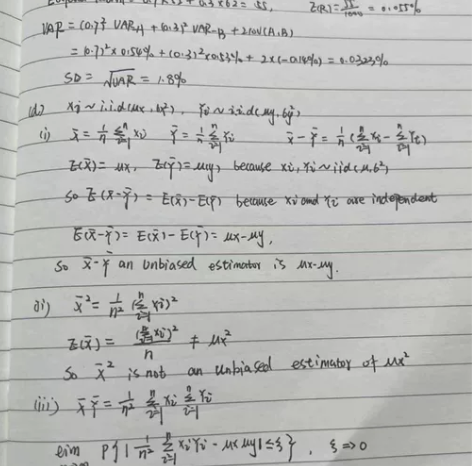 0.3×62 = 55,
VAR = (0.7)² VAR_A + (0.3)² VAR_B + 2COV(A,B)
= (0.7)²×0.54% + (0.3)²×0.53% + 2×(-0.14%) = 0.0323%
SD = √VAR = 1.8%
(d) Xi ~ i.i.d(μx, б²), Yi ~ i.i.d(μy, бy²)
(i) X̄ = 1/n Σⁿᵢ₌₁ Xi Ȳ = 1/n Σⁿᵢ₌₁ Yi X̄ - Ȳ = 1/n (Σⁿᵢ₌₁ Xi - Σⁿᵢ₌₁ Yi)
E(X̄) = μx, E(Ȳ) = μy, because Xi, Yi ~ iid(μ,б²)
So E(X̄-Ȳ) = E(X̄) - E(Ȳ) because Xi and Yi are independent
E(X̄-Ȳ) = E(X̄) - E(Ȳ) = μx - μy,
So X̄-Ȳ an unbiased estimator is μx-μy.
(ii) X̄² = 1/n² (Σⁿᵢ₌₁ Xi)²
E(X̄) = (Σⁿᵢ₌₁ Xi)²/n ≠ μx²
So X̄² is not an unbiased estimator of μx²
(iii) X̄Ȳ = 1/n² Σⁿᵢ₌₁ Xi Σⁿᵢ₌₁ Yi
lim P{|1/n² Σⁿᵢ₌₁ XiYi - μxμy| ≤ ξ}, ξ => 0